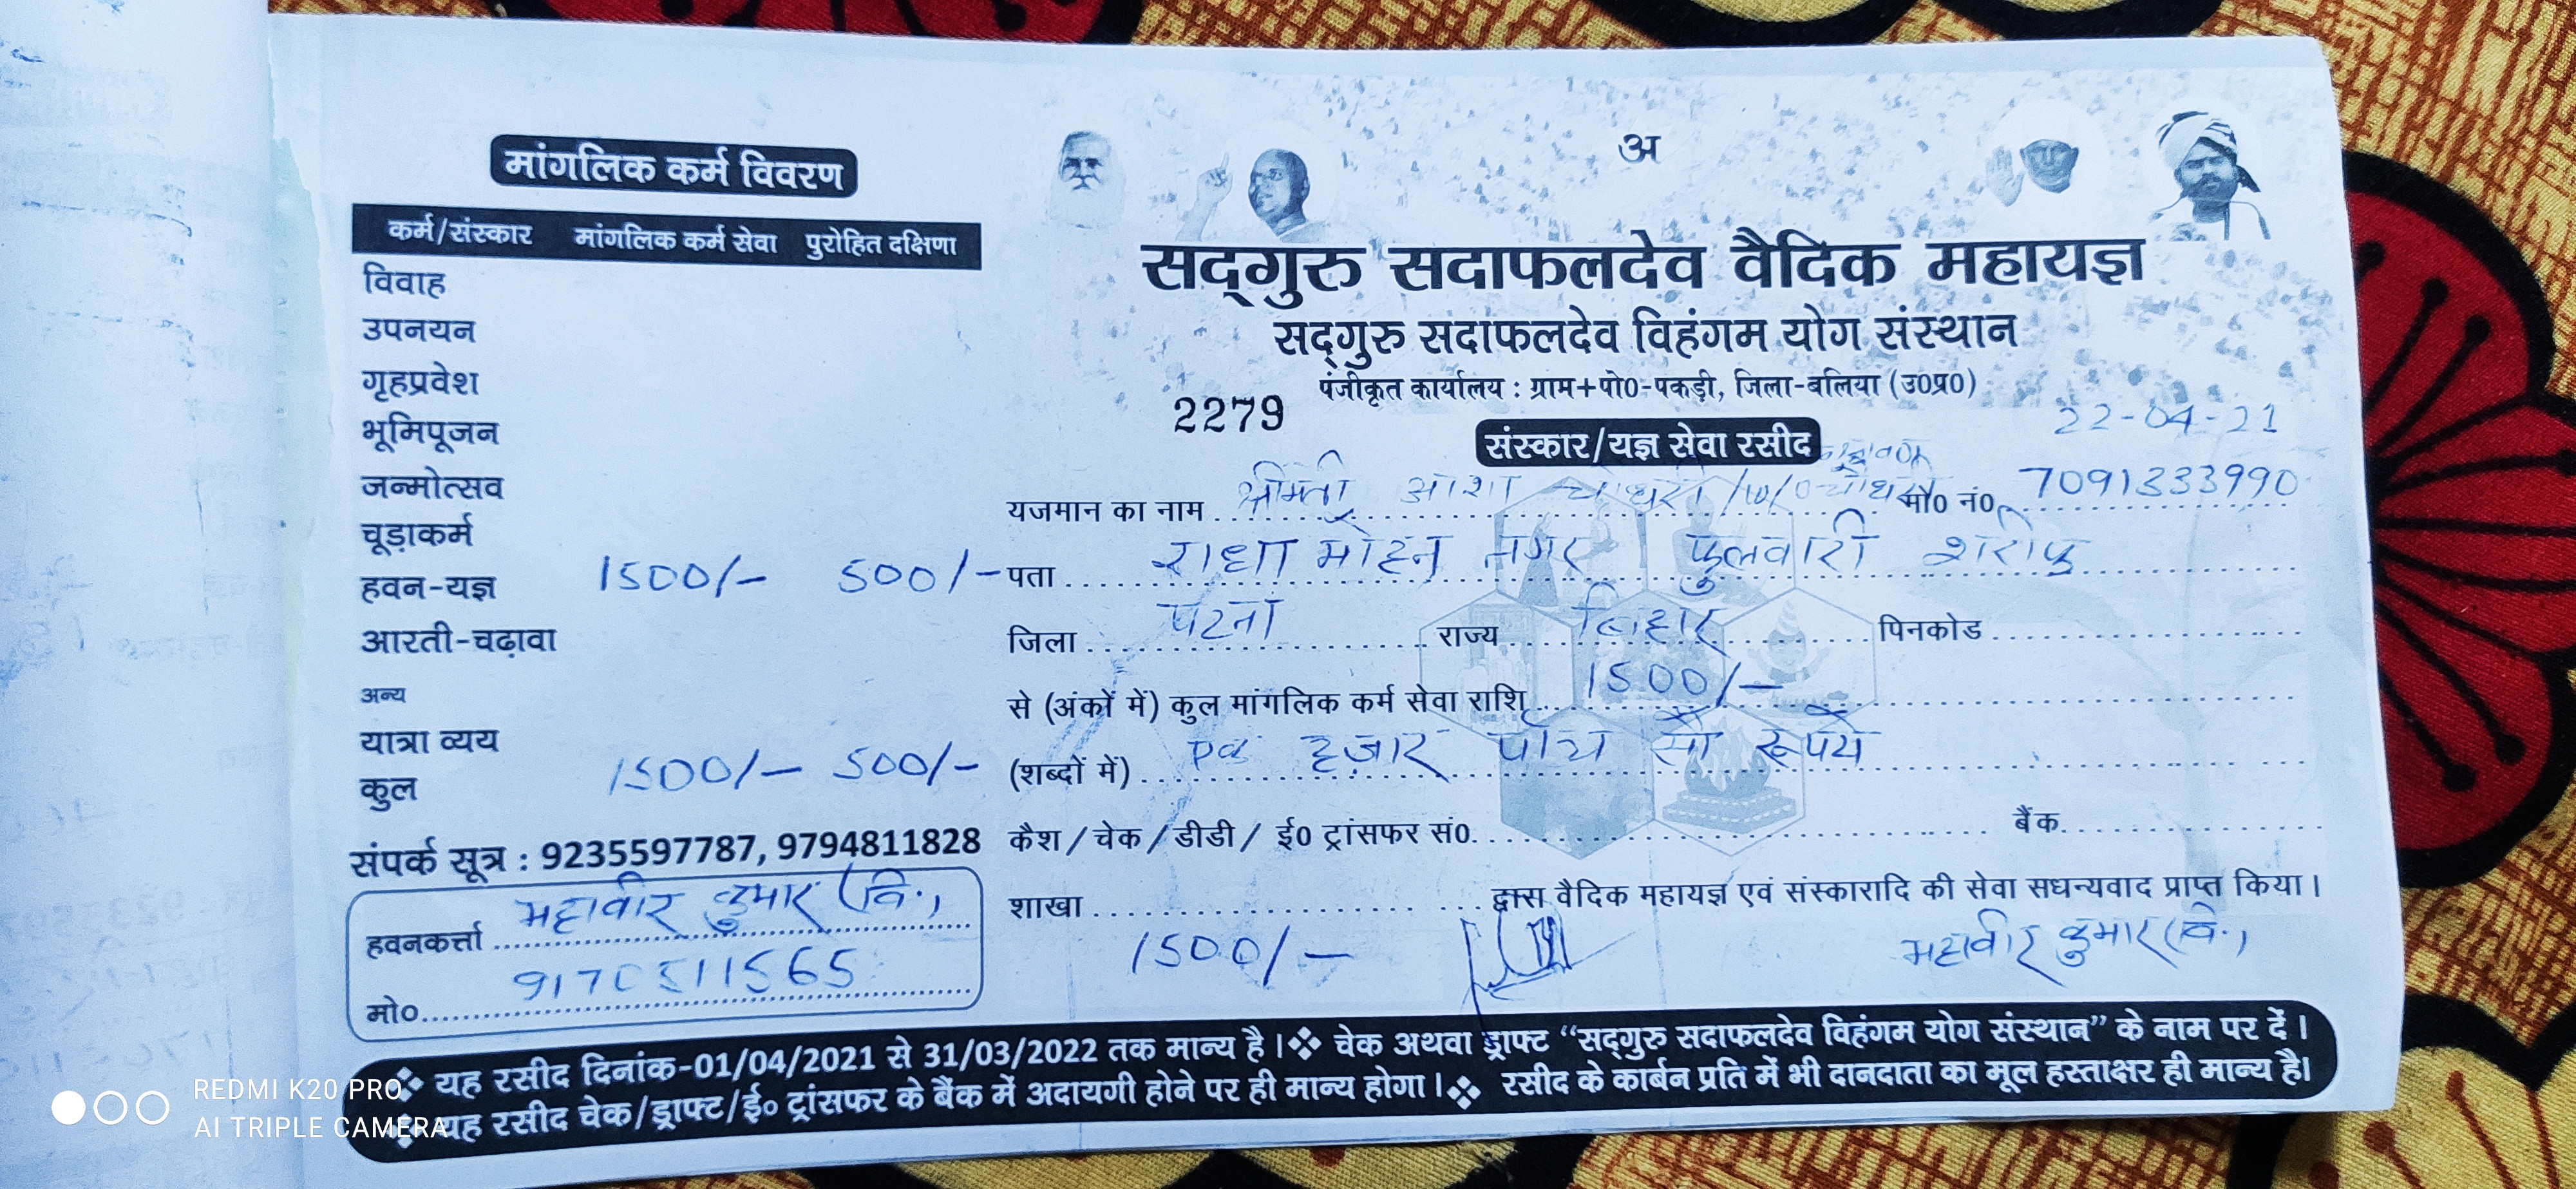 मांगलिक कर्म विवरण
कर्म/संस्कार मांगलिक कर्म सेवा पुरोहित दक्षिणा
विवाह
उपनयन
गृहप्रवेश
भूमिपूजन
जन्मोत्सव
चूड़ाकर्म
हवन-यज्ञ 1500/- 500/-
आरती-चढ़ावा
अन्य
यात्रा व्यय
कुल 1500/- 500/-
संपर्क सूत्र : 9235597787, 9794811828
हवनकर्त्ता महावीर कुमार (वि.)
मो० 9170511565
अ
सद्‌गुरु सदाफलदेव वैदिक महायज्ञ
सद्‌गुरु सदाफलदेव विहंगम योग संस्थान
पंजीकृत कार्यालय : ग्राम+पो0-पकड़ी, जिला-बलिया (उ0प्र0)
2279
22-04-21
संस्कार/यज्ञ सेवा रसीद
यजमान का नाम श्रीमती आशा चौधरी /w/o चौधरी मो0 नं0 7091333990
पता राधा मोहन नगर फुलवारी शरीफ
जिला पटना राज्य बिहार पिनकोड
से (अंकों में) कुल मांगलिक कर्म सेवा राशि 1500/-
(शब्दों में) एक हज़ार पाँच सौ रूपये
कैश / चेक / डीडी / ई0 ट्रांसफर सं0 बैंक
शाखा द्वारा वैदिक महायज्ञ एवं संस्कारादि की सेवा सधन्यवाद प्राप्त किया।
1500/- महावीर कुमार (वि.)
❖ यह रसीद दिनांक-01/04/2021 से 31/03/2022 तक मान्य है।❖ चेक अथवा ड्राफ्ट “सद्‌गुरु सदाफलदेव विहंगम योग संस्थान” के नाम पर दें।
❖ यह रसीद चेक/ड्राफ्ट/ई० ट्रांसफर के बैंक में अदायगी होने पर ही मान्य होगा।❖ रसीद के कार्बन प्रति में भी दानदाता का मूल हस्ताक्षर ही मान्य है।
REDMI K20 PRO
AI TRIPLE CAMERA